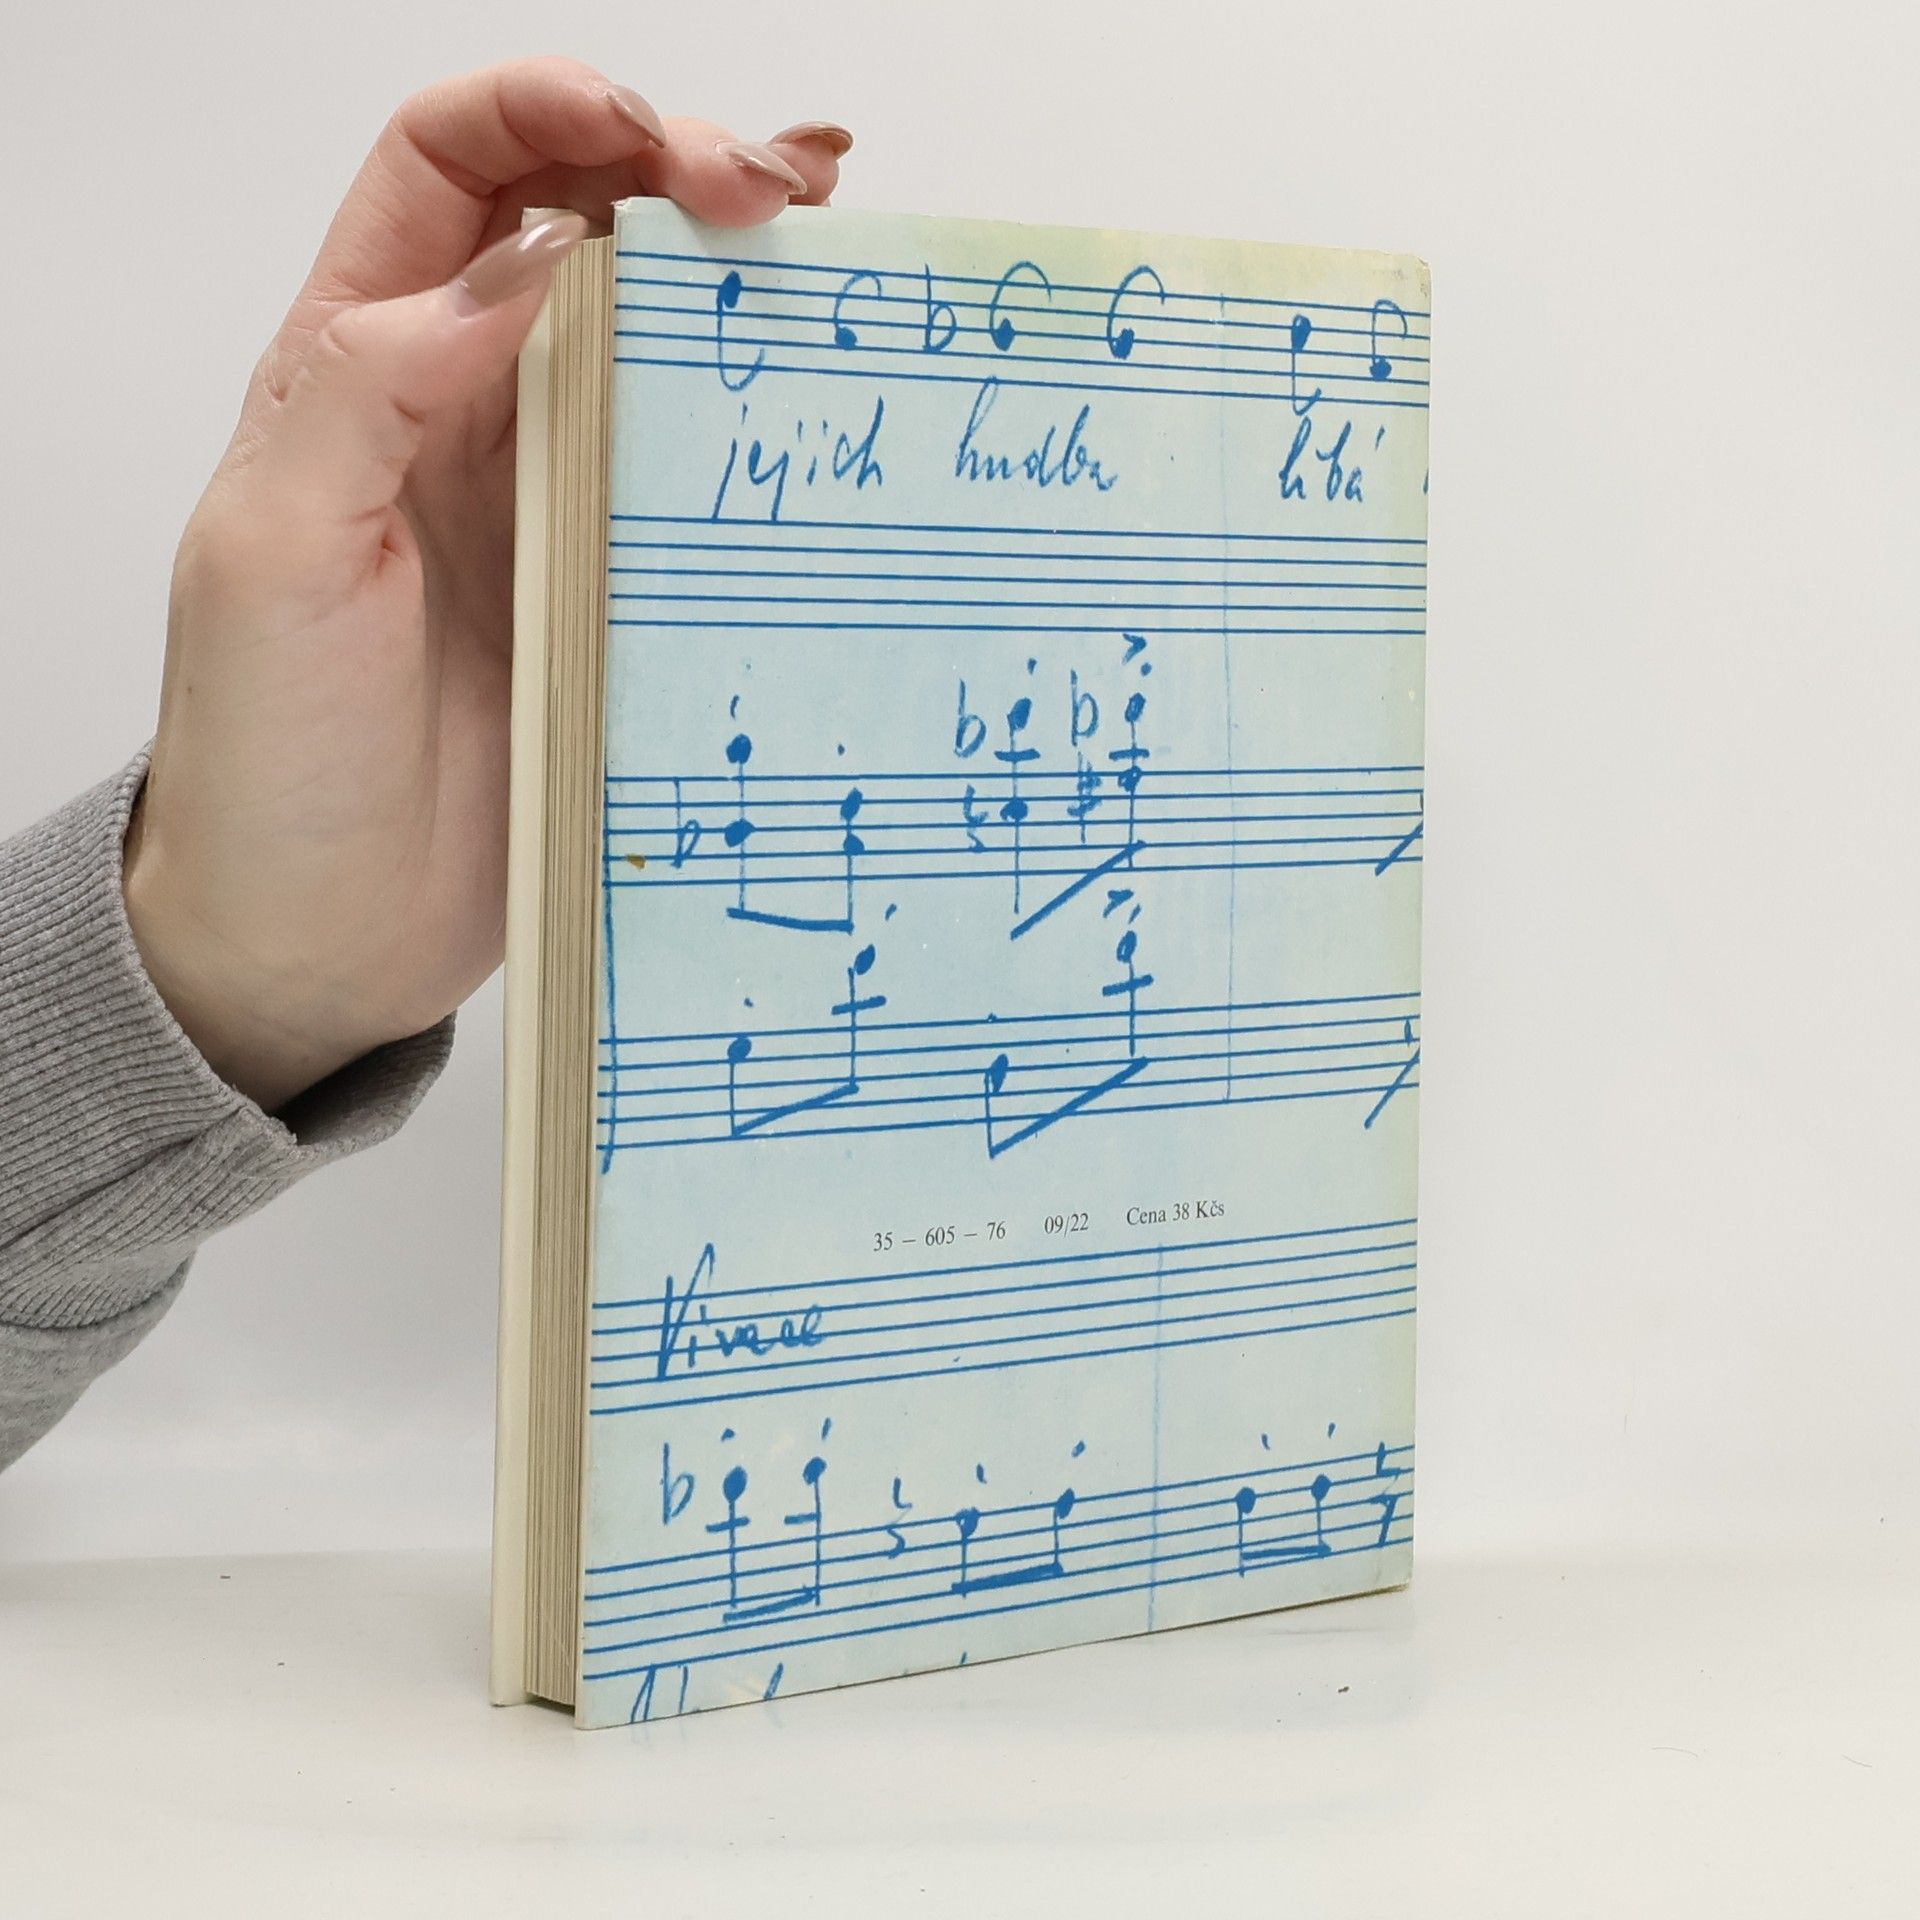 jejich hudba libá
35 – 605 – 76 09/22 Cena 38 Kčs
Vivace